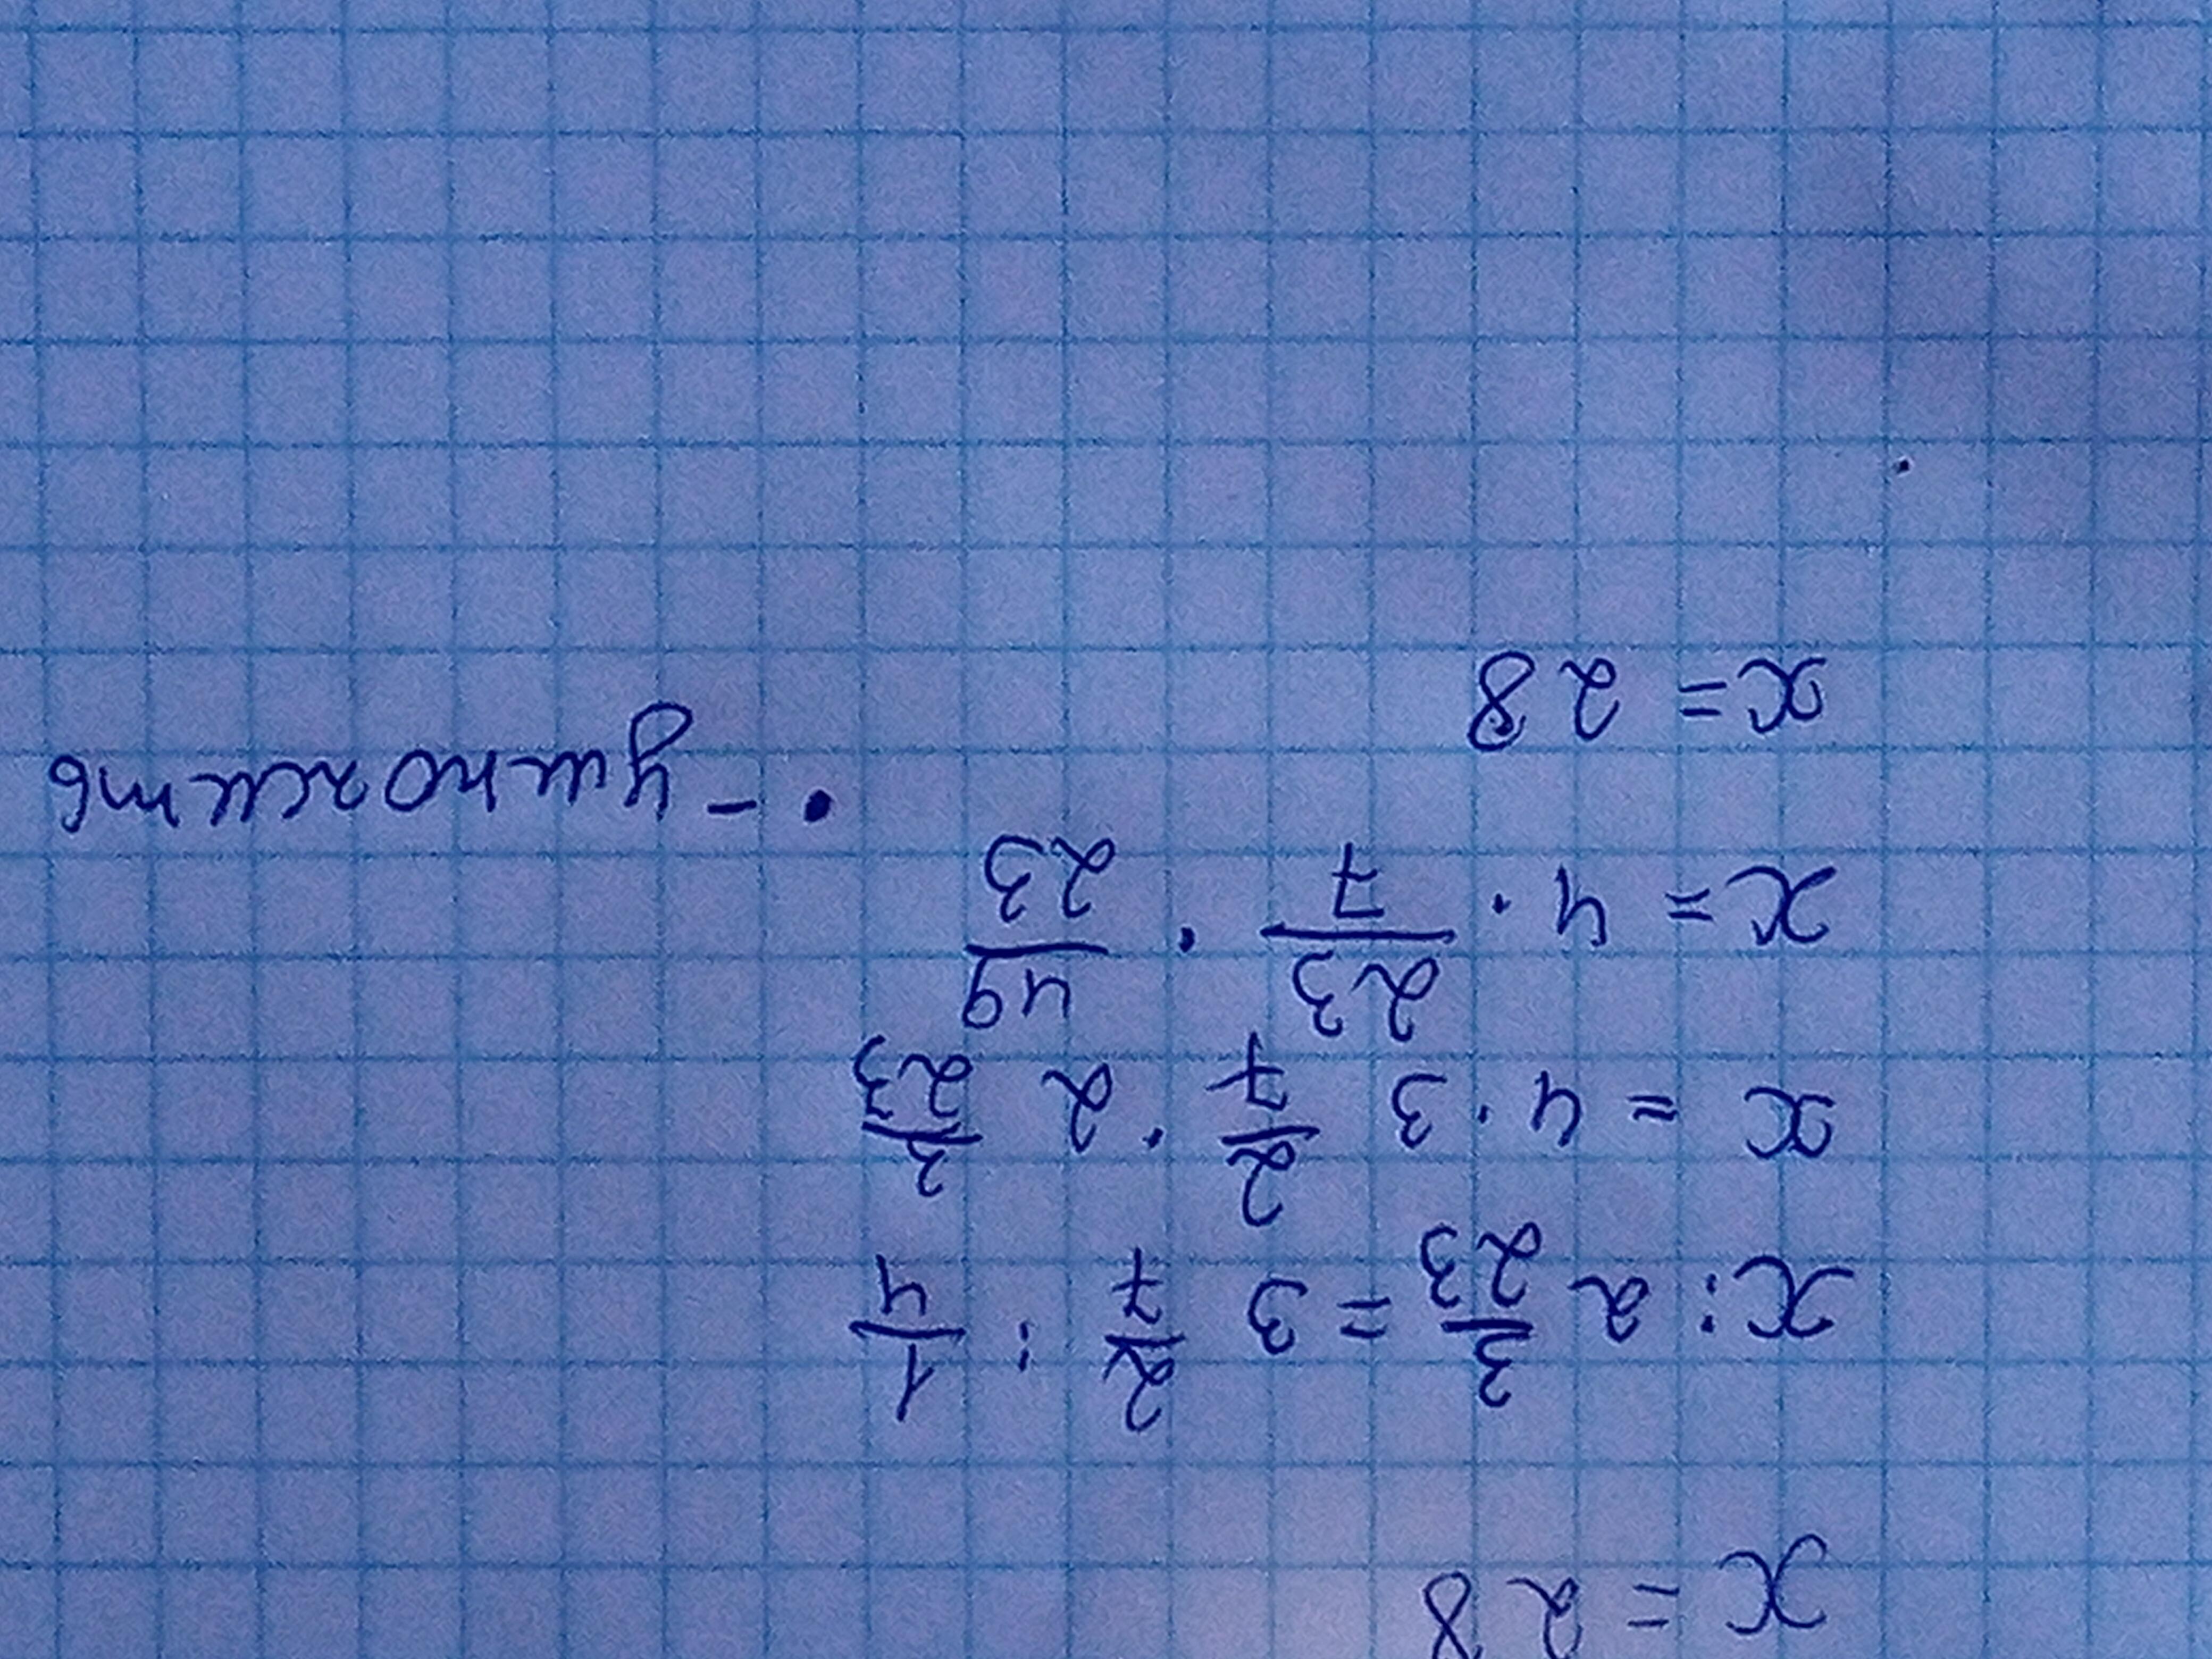 x = 28
x : 2 3/23 = 3 2/7 : 1/4
x = 4 · 3 2/7 · 2 3/23
x = 4 · 23/7 · 49/23
• – умножить
x = 28